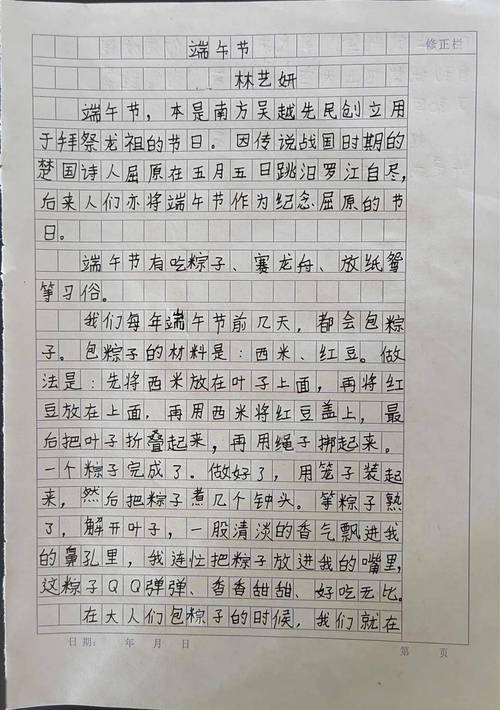 端午节
修正栏
林艺妍
端午节，本是南方吴越先民创立用
于拜祭龙祖的节日。因传说战国时期的
楚国诗人屈原在五月五日跳汨罗江自尽，
后来人们亦将端午节作为纪念屈原的节
日。
端午节有吃粽子、赛龙舟、放纸鸢
等习俗。
我们每年端午节前几天，都会包粽
子。包粽子的材料是：西米、红豆。做
法是：先将西米放在叶子上面，再将红
豆放在上面，再用西米将红豆盖上，最
后把叶子折叠起来，再用绳子绑起来。
一个粽子完成了。做好了，用笼子装起
来，然后把粽子煮几个钟头。等粽子熟
了，解开叶子，一股清淡的香气飘进我
的鼻孔里，我连忙把粽子放进我的嘴里，
这粽子QQ弹弹、香香甜甜、好吃无比。
在大人们包粽子的时候，我们就在
日期： 年 月 日
第 页